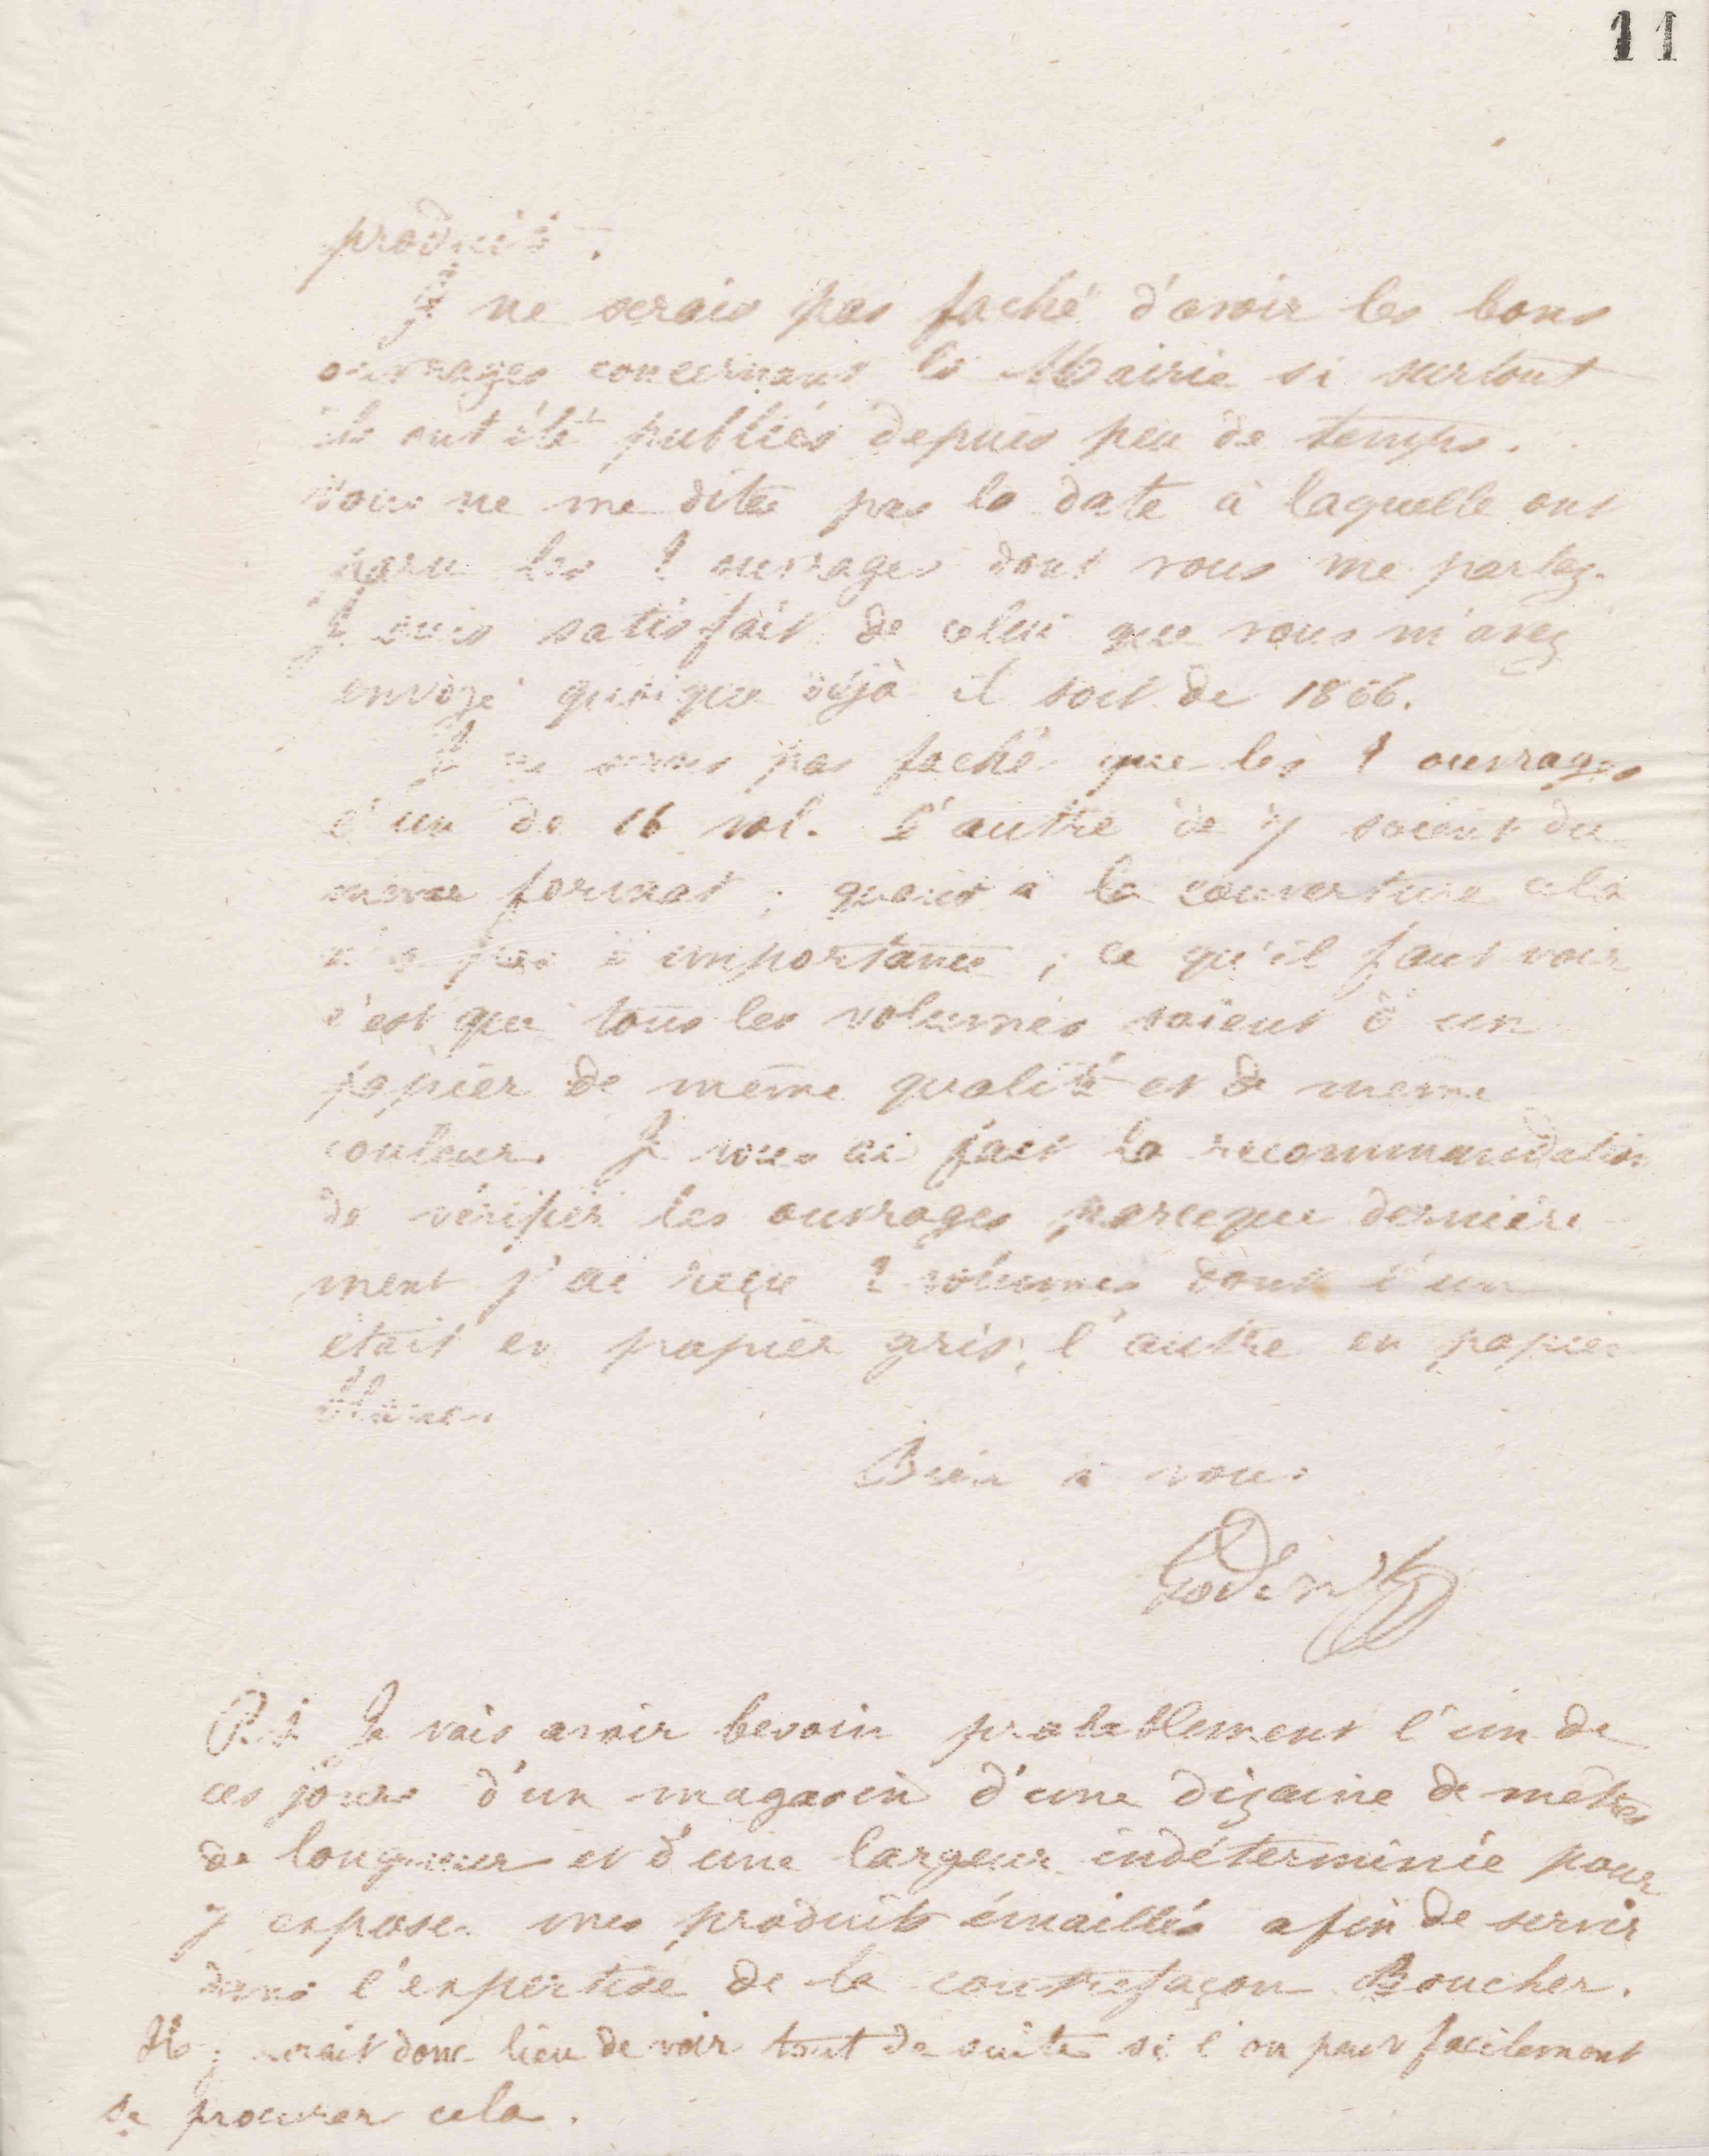 11
produits.
Je ne serais pas faché d'avoir les bons
ouvrages concernant la Mairie si surtout
ils ont été publiés depuis peu de temps.
Vous ne me dites pas la date à laquelle ont
paru les 2 ouvrages dont vous me parlez.
Je suis satisfait de celui que vous m'avez
envoyé quoique déjà il soit de 1866.
Je ne serais pas faché que les 2 ouvrages
l'un de 16 vol. l'autre de 7 soient du
même format ; quant à la couverture cela
n'a pas d'importance ; ce qu'il faut voir
c'est que tous les volumes soient d'un
papier de même qualité et de même
couleur. Je vous ai fait la recommandation
de vérifier les ouvrages parceque dernière
ment j'ai reçu 2 volumes dont l'un
était en papier gris, l'autre en papier
blanc.
Bien à vous
Godin
P.S. Je vais avoir besoin probablement l'un de
ces jours d'un magasin d'une dizaine de mètres
de longueur et d'une largeur indéterminée pour
y exposer mes produits émaillés afin de servir
dans l'expertise de la contrefaçon Boucher.
Il y aurait donc lieu de voir tout de suite si l'on peut facilement
se procurer cela.